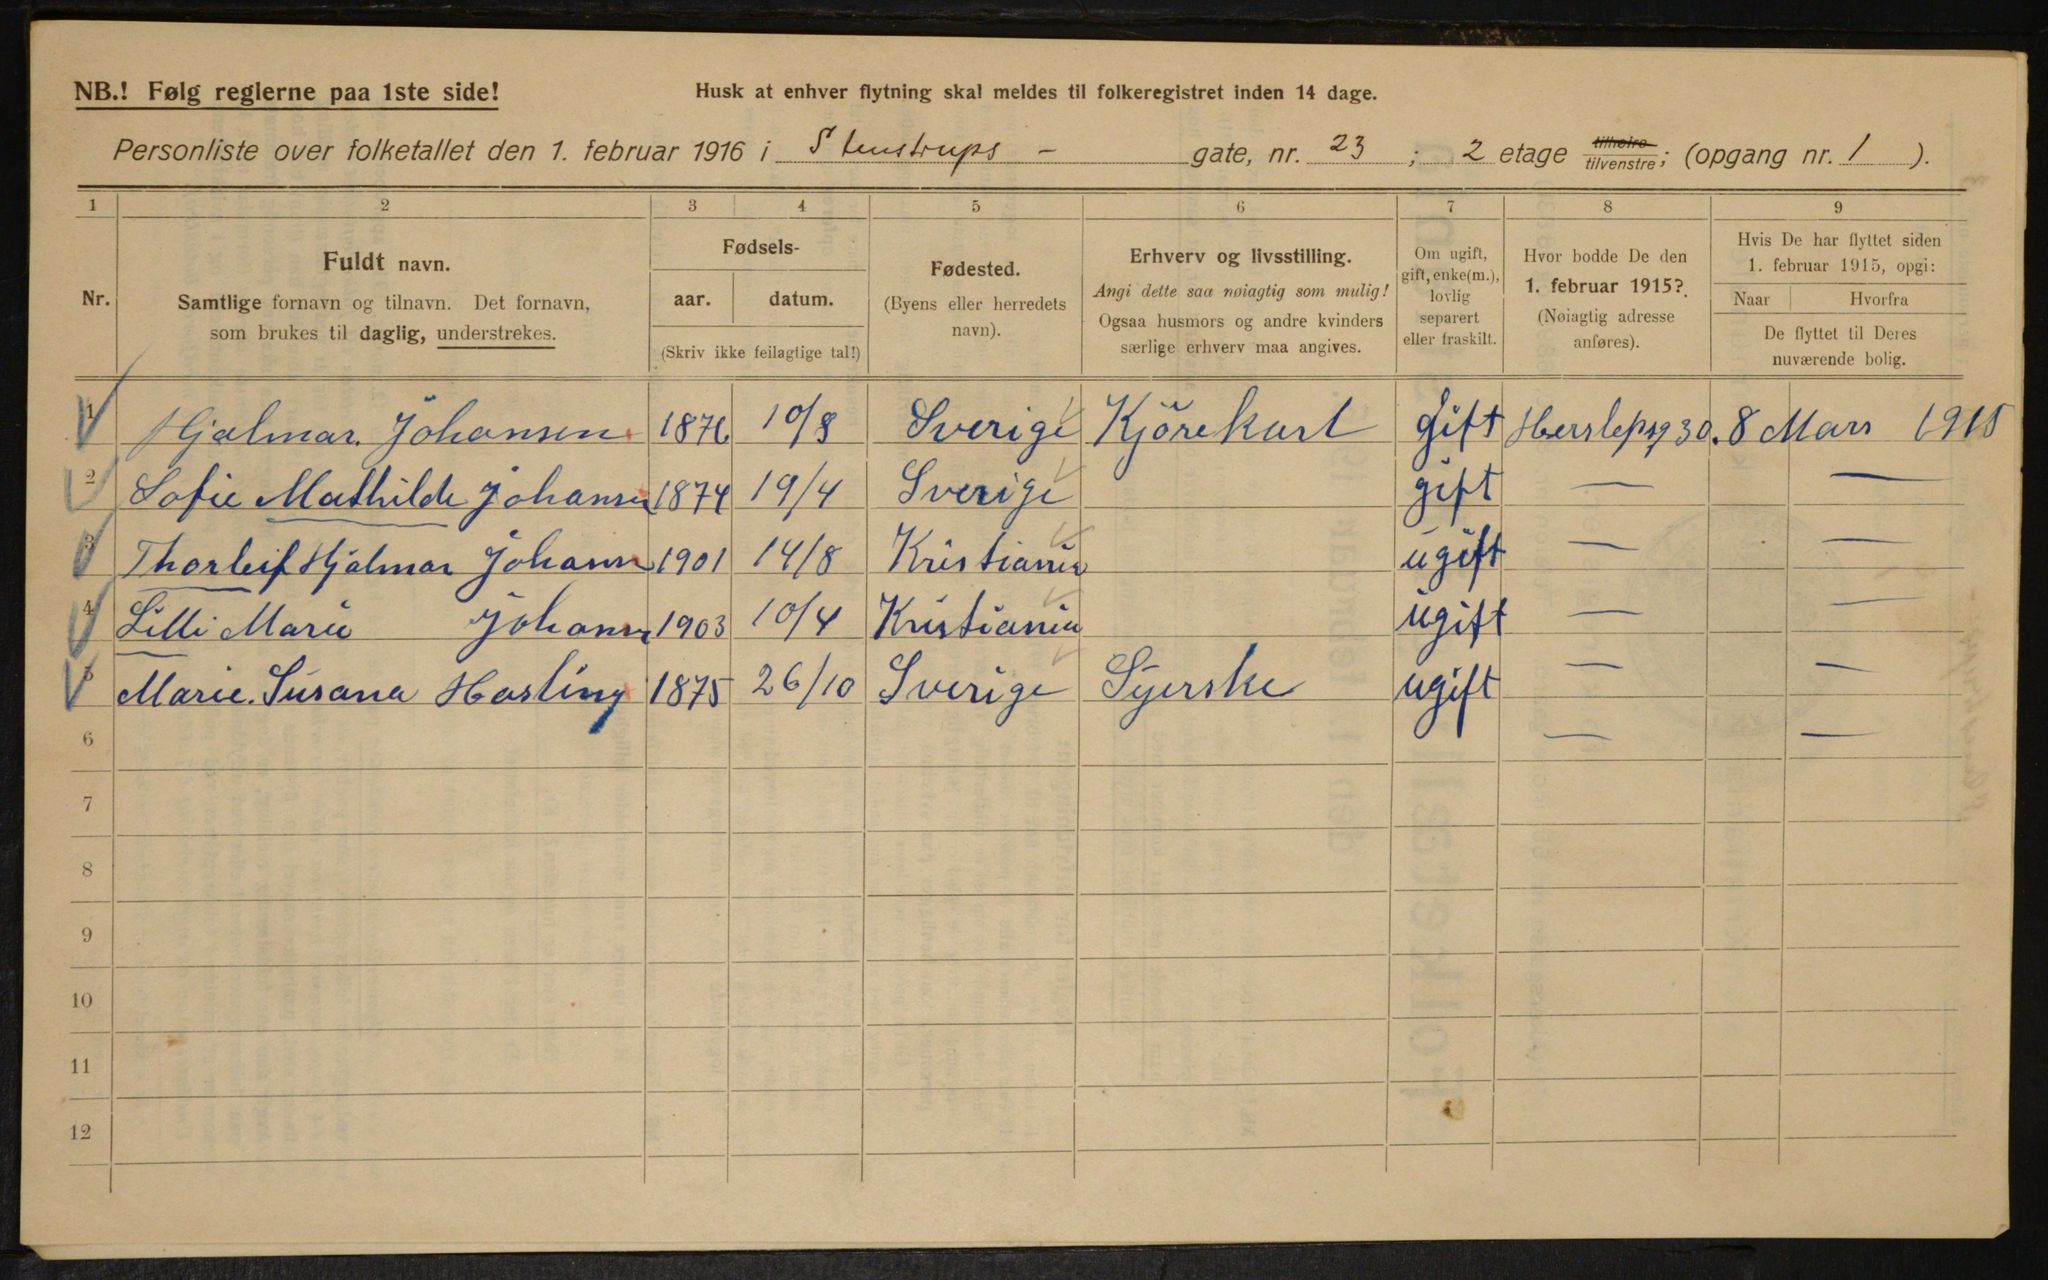 NB.! Følg reglerne paa 1ste side!
Husk at enhver flytning skal meldes til folkeregistret inden 14 dage.
Personliste over folketallet den 1. februar 1916 i Stenstrups - gate, nr. 23 ; 2 etage tilhøire/tilvenstre; (opgang nr. 1 ).
1 2 3 4 5 6 7 8 9
Nr.
Fuldt navn.
Samtlige fornavn og tilnavn. Det fornavn,
som brukes til daglig, understrekes.
Fødsels-
aar. datum.
(Skriv ikke feilagtige tal!)
Fødested.
(Byens eller herredets
navn).
Erhverv og livsstilling.
Angi dette saa nøiagtig som mulig!
Ogsaa husmors og andre kvinders
særlige erhverv maa angives.
Om ugift,
gift, enke(m.),
lovlig
separert
eller fraskilt.
Hvor bodde De den
1. februar 1915?
(Nøiagtig adresse
anføres).
Hvis De har flyttet siden
1. februar 1915, opgi:
Naar Hvorfra
De flyttet til Deres
nuværende bolig.
1 Hjalmar Johansen 1876 10/8 Sverige Kjörekarl gift Herslepsg 30. 8 Mars 1915
2 Sofie Mathilde Johansen 1874 19/4 Sverige gift — —
3 Thorleif Hjalmar Johansen 1901 14/8 Kristiania ugift — —
4 Lilli Marie Johansen 1903 10/4 Kristiania ugift — —
5 Marie Susana Hasling 1875 26/10 Sverige Syerske ugift — —
6 — —
7
8
9
10
11
12